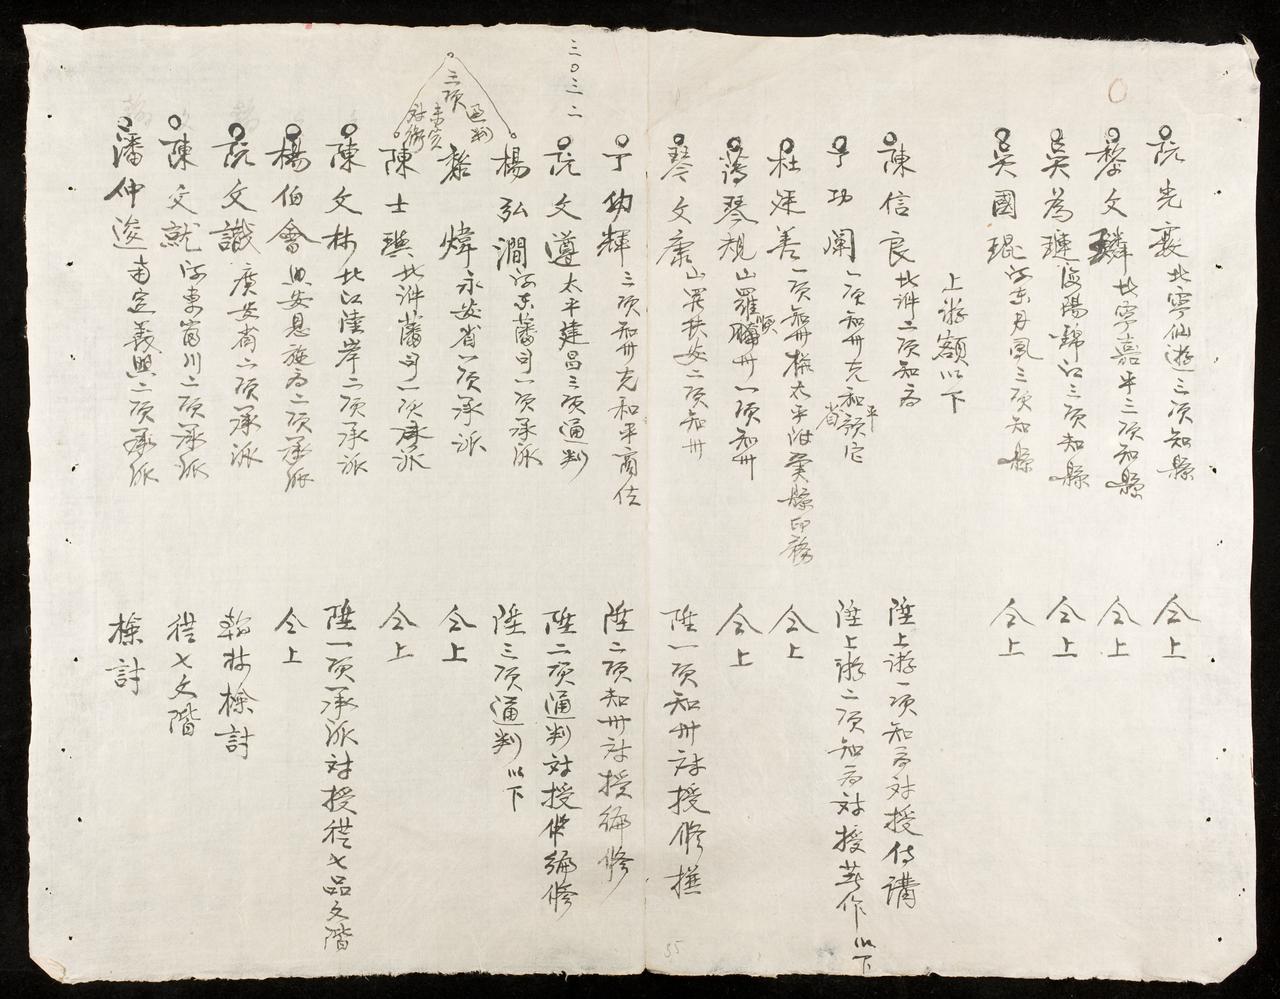 阮光裘北寧仙遊三項知縣
仝上
黎文璘北寧嘉平三項知縣
仝上
吳為璉海陽錦江三項知縣
仝上
吳國琨河東丹鳳三項知縣
仝上
上游額以下
陳信良北𣴓二項知府
陞上游一項知府対授侍講
丁功闌一項知州充和平省額官
陞上游二項知府対授著作以下
杜廷善一項知州權太平附翼縣印務
仝上
蔣琴規山羅順州一項知州
仝上
琴文康山羅扶安二項知州
陞一項知州対授修撰
丁幼輝三項知州充和平商佐
陞二項知州対授編修
三〇三二
阮文遵太平建昌三項通判
陞二項通判対授修編修
楊弘澗河東藩司一項承派
陞三項通判以下
三項通判
未實対銜
嵇煒永安省一項承派
仝上
陳士琪北𣴓藩司一項承派
仝上
陳文林北江陸岸二項承派
陞一項承派対授從七品文階
楊伯會興安恩施府二項承派
仝上
阮文識廣安省二項承派
翰林檢討
陳文就河東富川二項承派
從七文階
潘仲逡南定義興二項承派
檢討
35